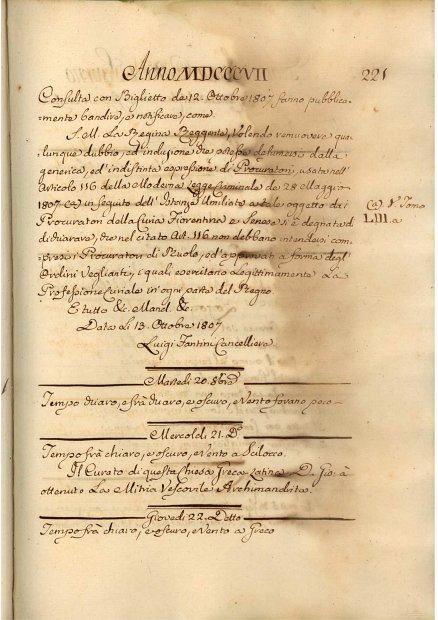 Anno MDCCCVII 221
Consulta con Biglietto de 12. Ottobre 1807 fanno pubblica-
mente bandire, e notificare, come
S. M. La Regina Reggente, Volendo remuovere qua-
lunque dubbio, ed inclusione che potesse desumersi dalla
generica, ed indistinta espressione di Procuratori, usata nell'
Articolo 116 della Moderna Legge Criminale de 28 Maggio
1807 (a) in seguito dell' Istanza Umiliatale a tale oggetto dai
(a) V. Tomo
LIII. a
Procuratori della Curia Fiorentina e Senese, si è degnata di
dichiarare, che nel citato Art. 116 non debbano intendersi com-
presi i Procuratori di Ruolo, ed approvati a forma degl'
Ordini Veglianti, i quali esercitano legittimamente La
Professione Curiale in ogni parte del Regno.
E tutto &c. Mand. &c.
Data li 13. Ottobre 1807
Luigi Fantini Cancelliere
Martedi 20. 8bre
Tempo chiaro, e frà chiaro, e oscuro, e Vento forano poco
Mercoldi 21. Do
Tempo frà chiaro, e oscuro, e Vento a Scilocco.
Il Curato di questa Chiesa Greca Latina D. Gio: à
ottenuto La Mitria Vescovile Archimandrita.
Giovedi 22. Detto
Tempo frà chiaro, e oscuro, e Vento a Greco